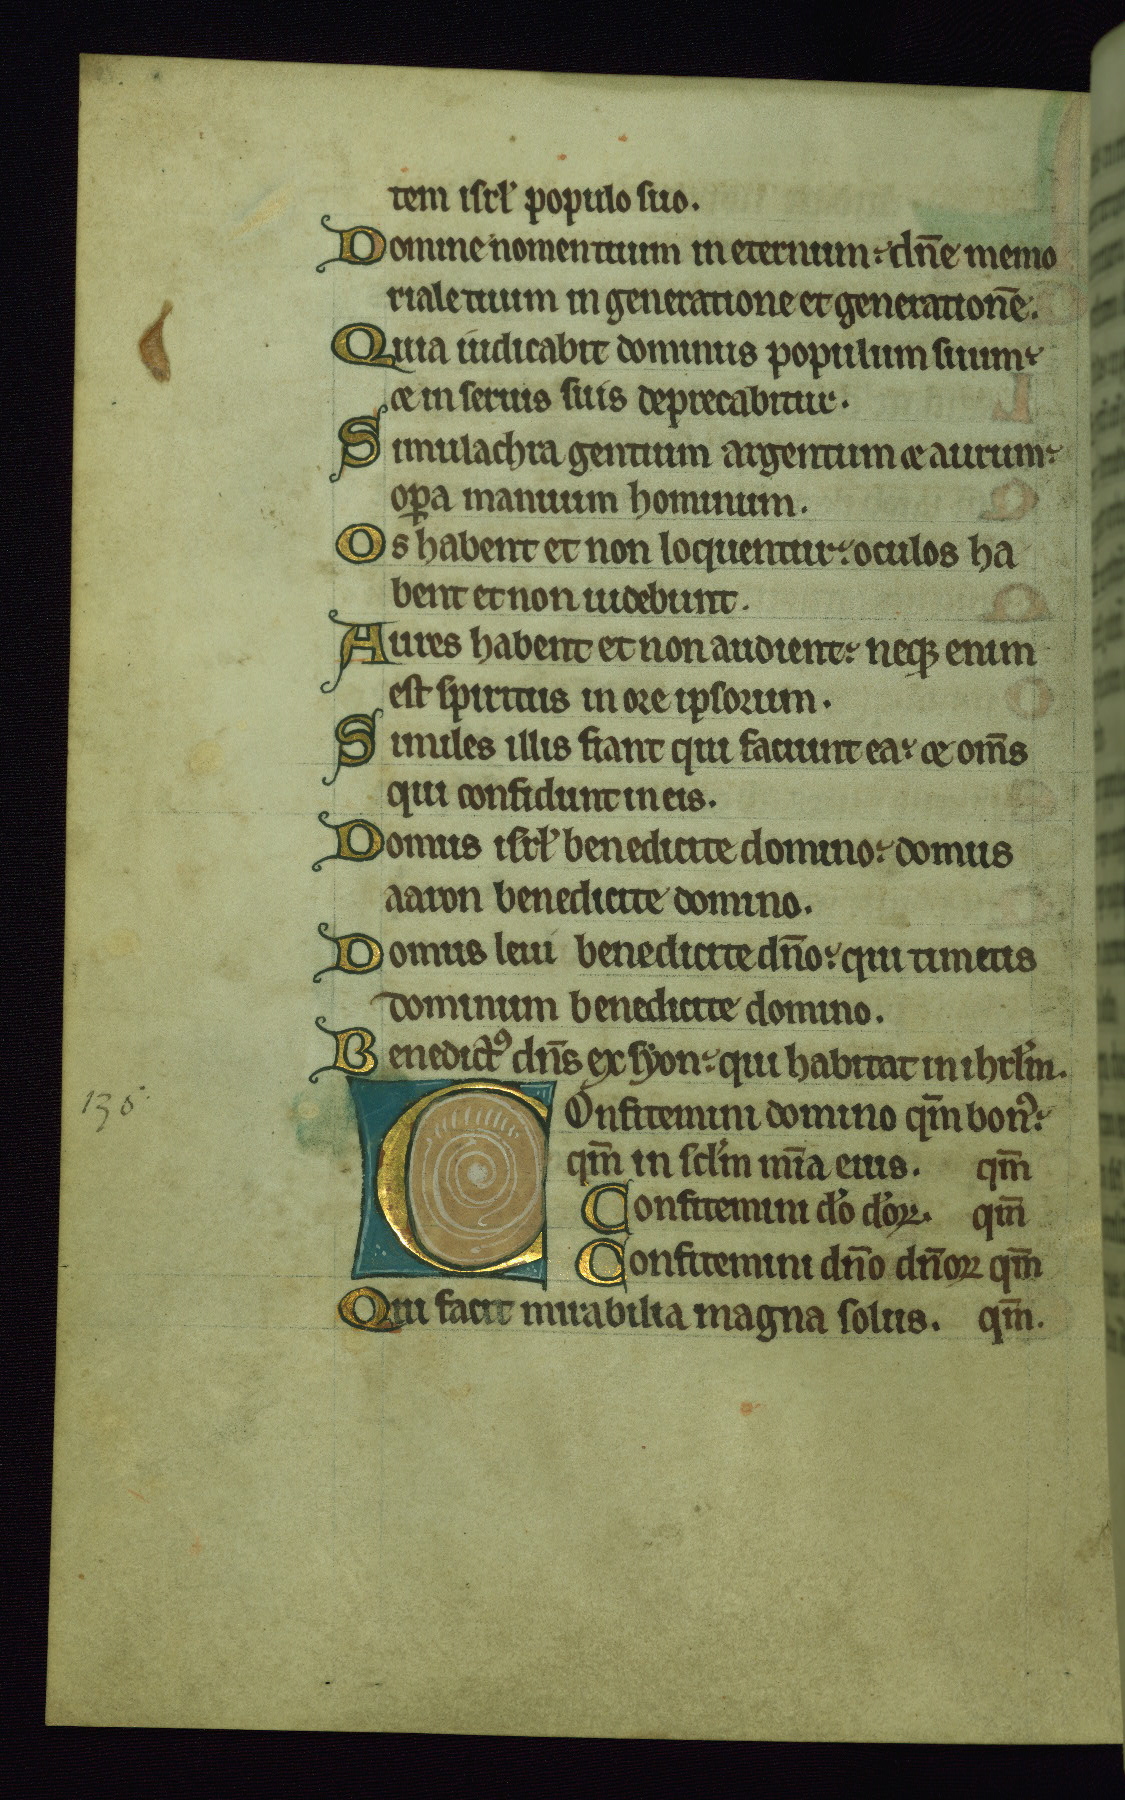 tem isrl' populo suo.
Domine nomen tuum in eternum: dn̄e memo
riale tuum in generatione et generationē.
Quia iudicabit dominus populum suum:
⁊ in seruis suis deprecabitur.
Simulachra gentium argentum ⁊ aurum:
op̄a manuum hominum.
Os habent et non loquentur: oculos ha
bent et non uidebunt.
Aures habent et non audient: neq; enim
est spiritus in ore ipsorum.
Similes illis fiant qui faciunt ea: ⁊ om̄s
qui confidunt in eis.
Domus isrl' benedicite domino: domus
aaron benedicite domino.
Domus leui benedicite dn̄o: qui timetis
dominum benedicite domino.
Benedict9 dn̄s ex syon: qui habitat in ihrl'm.
136.
COnfitemini domino qm̄ bon9:
qm̄ in scl'm mīa eius. qm̄
Confitemini d'o d'oꝝ. qm̄
Confitemini dn̄o dn̄oꝝ qm̄
Qui facit mirabilia magna solus. qm̄.